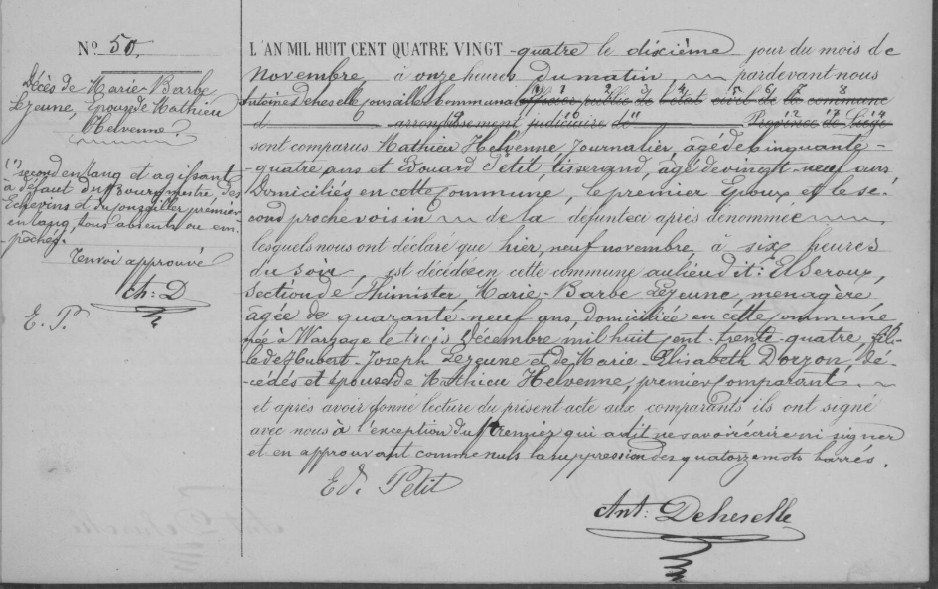 N.º 50.
Décès de Marie-Barbe
Lejeune, Epouse de Mathieu
Helvenne.
(1) second en rang et agissant
à défaut du Bourgmestre des
Echevins et du Conseiller premier
en rang, tous absents ou em-
pêchés.
Renvoi approuvé
Ant: D
E. P.
L'AN MIL HUIT CENT QUATRE VINGT-quatre le dixième jour du mois de
Novembre, à onze heures du matin, pardevant nous
Antoine Deheselle, conseiller Communal (1) officier public de l'état civil de la commune
d arrondissement judiciaire de Province de Liége
sont comparus Mathieu Helvenne Journalier, âgé de cinquante-
quatre ans et Edouard Petit, tisserand, âgé de vingt-neuf ans
Domiciliés en cette Commune, le premier Epoux et le se-
cond proche voisin de la défunte ci après dénommée
lesquels nous ont déclaré que hier, neuf novembre, à six heures
du soir, est décédée en cette commune au lieu dit: Elseroux,
Section de Thimister, Marie-Barbe Lejeune, menagère
agée de quarante-neuf ans, domiciliée en cette commune
née à Warsage le trois Décembre mil huit cent trente quatre, fil-
le de Hubert-Joseph Lejeune et de Marie-Elisabeth Dorzon, dé-
cédés et épouse de Mathieu Helvenne, premier comparant.
et après avoir donné lecture du présent acte aux comparants ils ont signé
avec nous à l'exception du premier qui a dit ne savoir écrire ni signer
et en approuvant comme nuls la suppression des quatorze mots barrés.
Ed. Petit
Ant: Deheselle